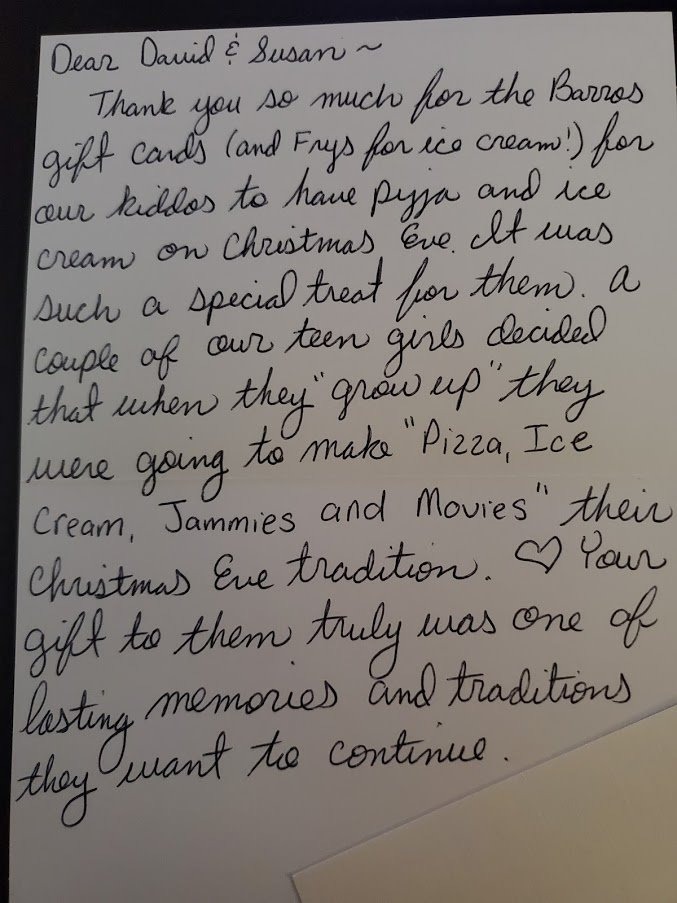 Dear David & Susan ~
Thank you so much for the Barros
gift cards (and Frys for ice cream!) for
our kiddos to have pizza and ice
cream on Christmas Eve. It was
such a special treat for them. A
couple of our teen girls decided
that when they "grow up" they
were going to make "Pizza, Ice
Cream, Jammies and Movies" their
Christmas Eve tradition. ♡ Your
gift to them truly was one of
lasting memories and traditions
they want to continue.